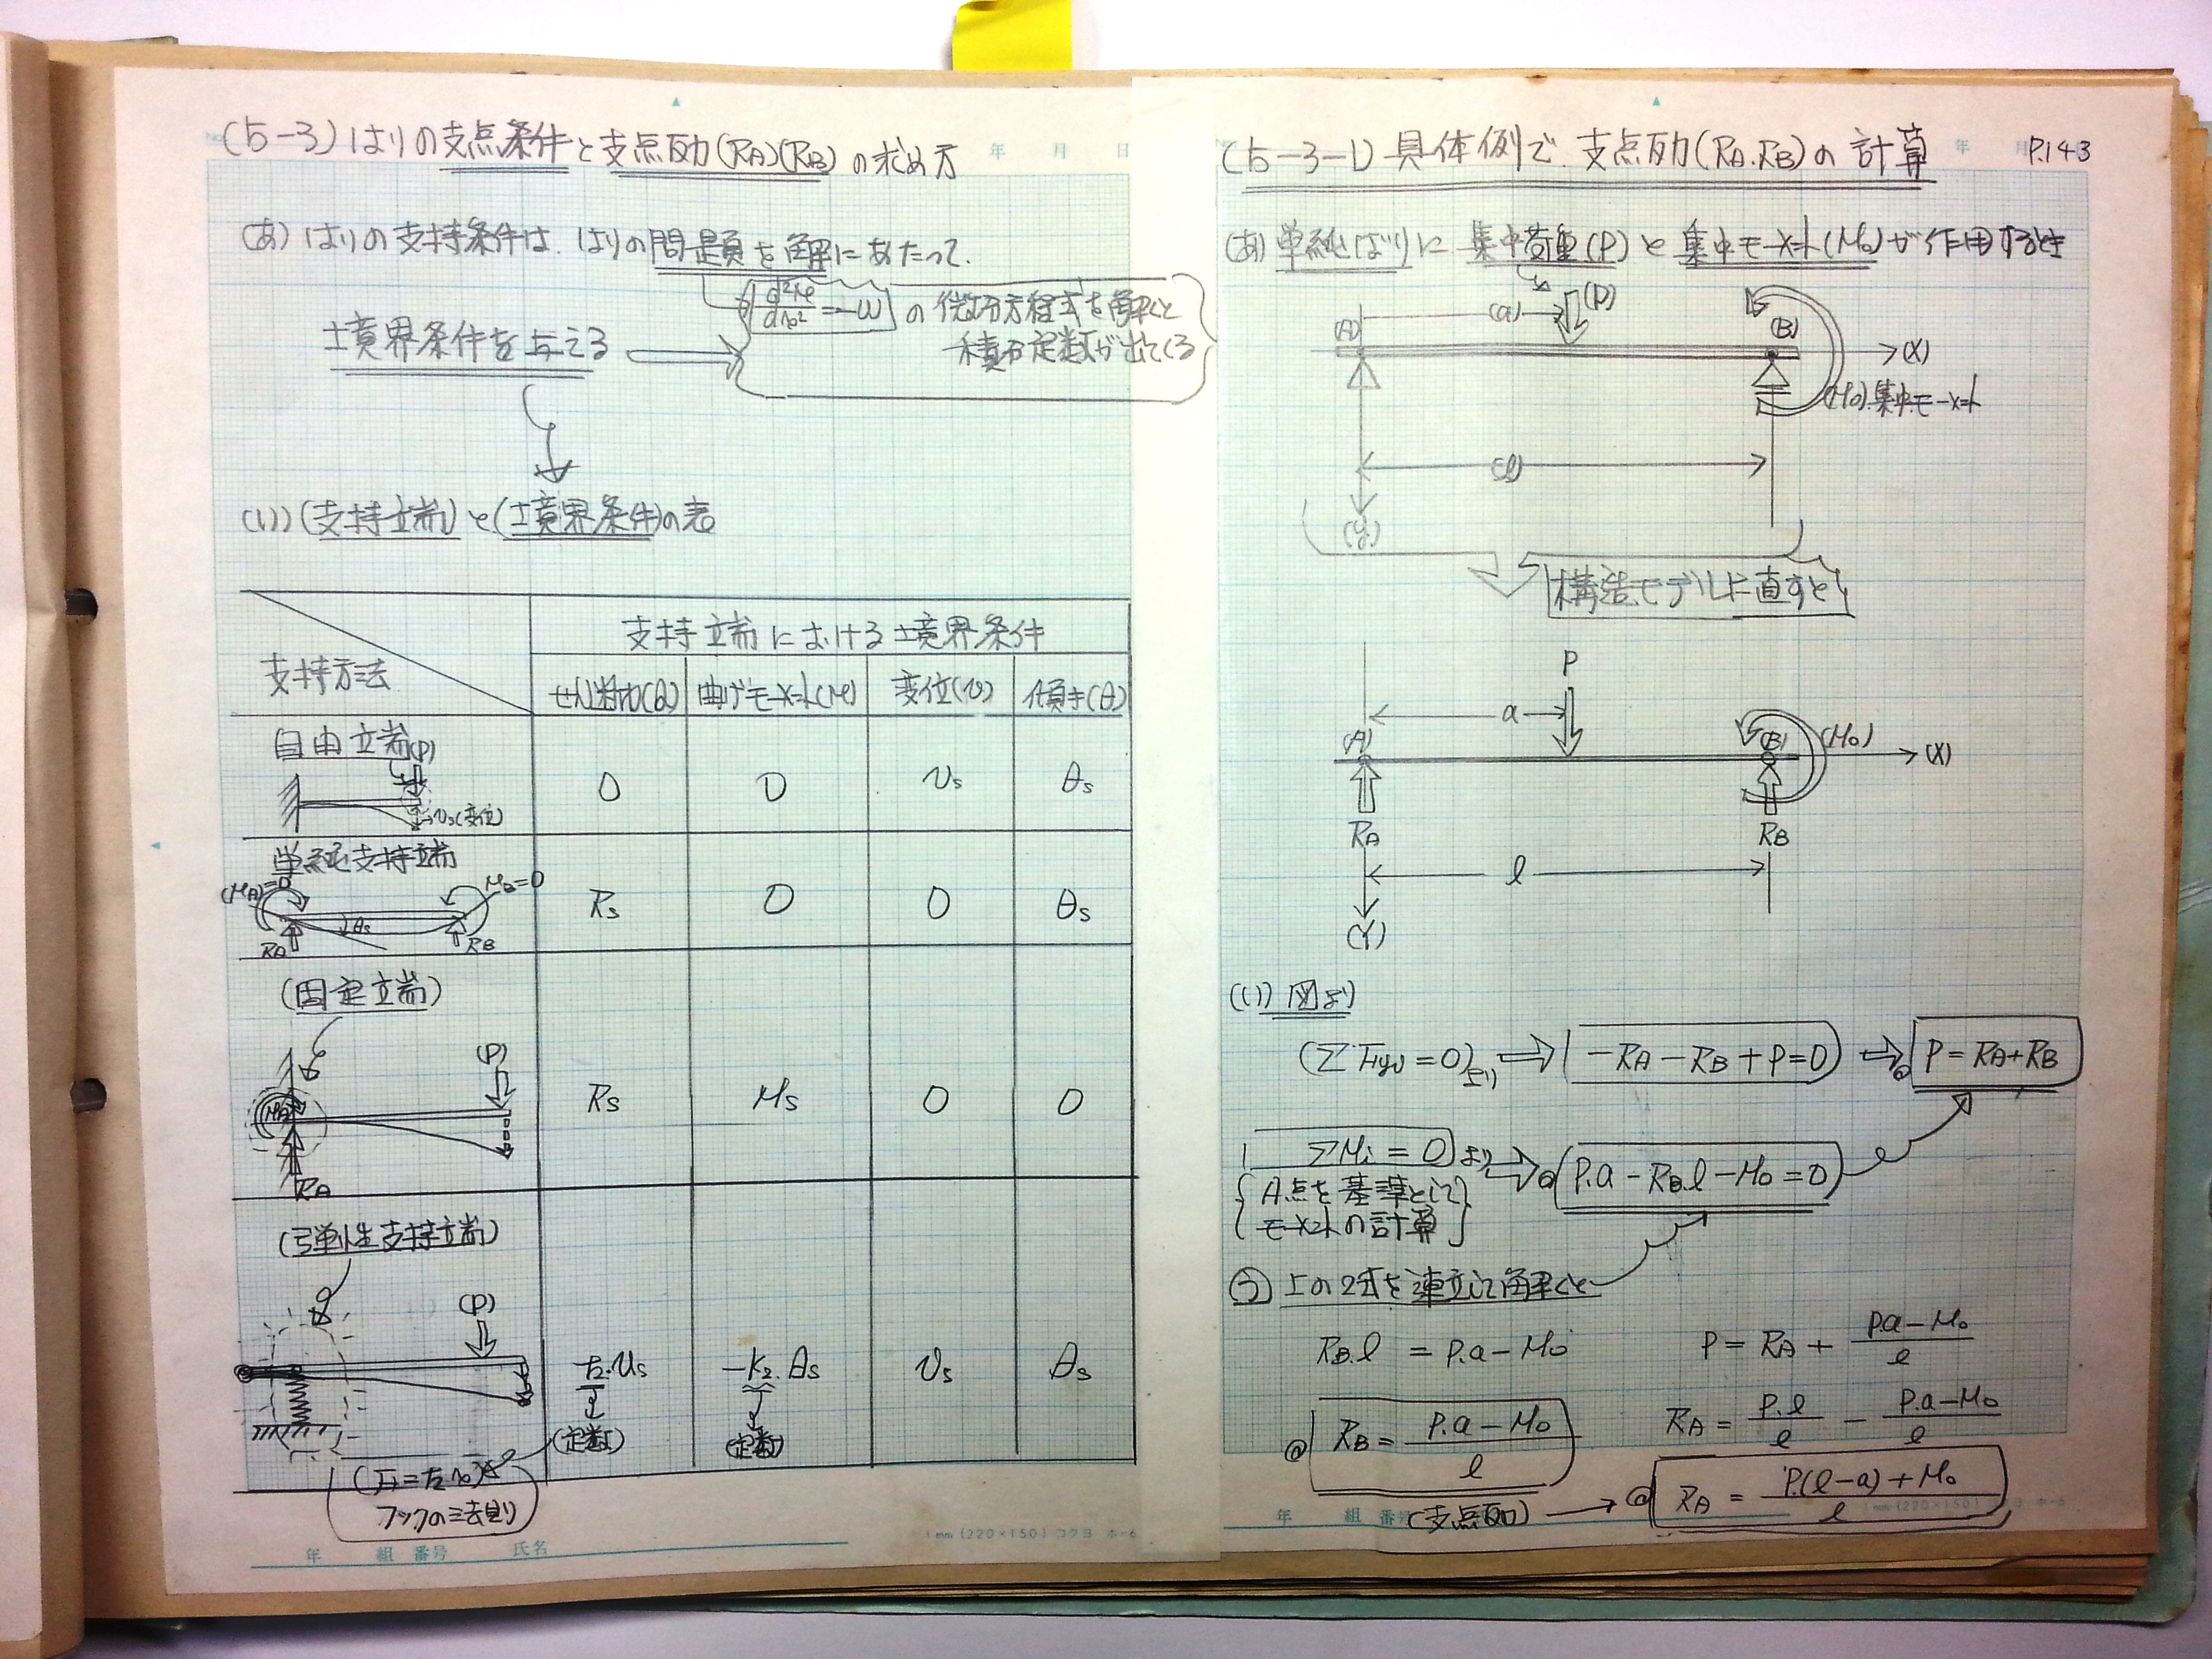 (5-3) はりの支点条件と支点反力(RA)(RB)の求め方
年 月 日
(あ) はりの支持条件は、はりの問題を解にあたって、
d²M/dx² = -w の微分方程式を解くと
積分定数が出てくる
境界条件を与える
(い) (支持端)と(境界条件)の表
支持方法
支持端における境界条件
せん断力(Q) 曲げモーメント(M) 変位(v) 傾き(θ)
自由端 (P)
vs(変位)
0 0 vs θs
単純支持端
(MA)=0 MB=0
θs
RA RB
Rs 0 0 θs
(固定端)
(P)
MA
RA
Rs Ms 0 0
(弾性支持端)
(P)
k.vs -k2.θs vs θs
(定数) (定数)
フックの法則
1mm (220×150) コクヨ ホ-6
年 組 番号 氏名
(5-3-1) 具体例で、支点反力(RA.RB)の計算
年 月 P.143
(あ) 単純ばりに集中荷重(P)と集中モーメント(Mo)が作用するとき
(a) (P)
(A) (B) (X)
(Mo).集中モーメント
(l)
(y)
構造モデルに直すと
P
a
(A) (B) (Mo) (X)
RA RB
l
(Y)
(い) 図より
(ΣFyi=0)より ⇒ -RA-RB+P=0 ⇒ P=RA+RB
ΣMi=0 より ⇒ P.a-RB.l-Mo=0
A点を基準として
モーメントの計算
(う) 上の2式を連立して解くと
RB.l = P.a-Mo P = RA + P.a-Mo/l
RB = P.a-Mo/l RA = P.l/l - P.a-Mo/l
(支点反力) → RA = P(l-a)+Mo/l
年 組 番号
1mm (220×150) コクヨ ホ-6